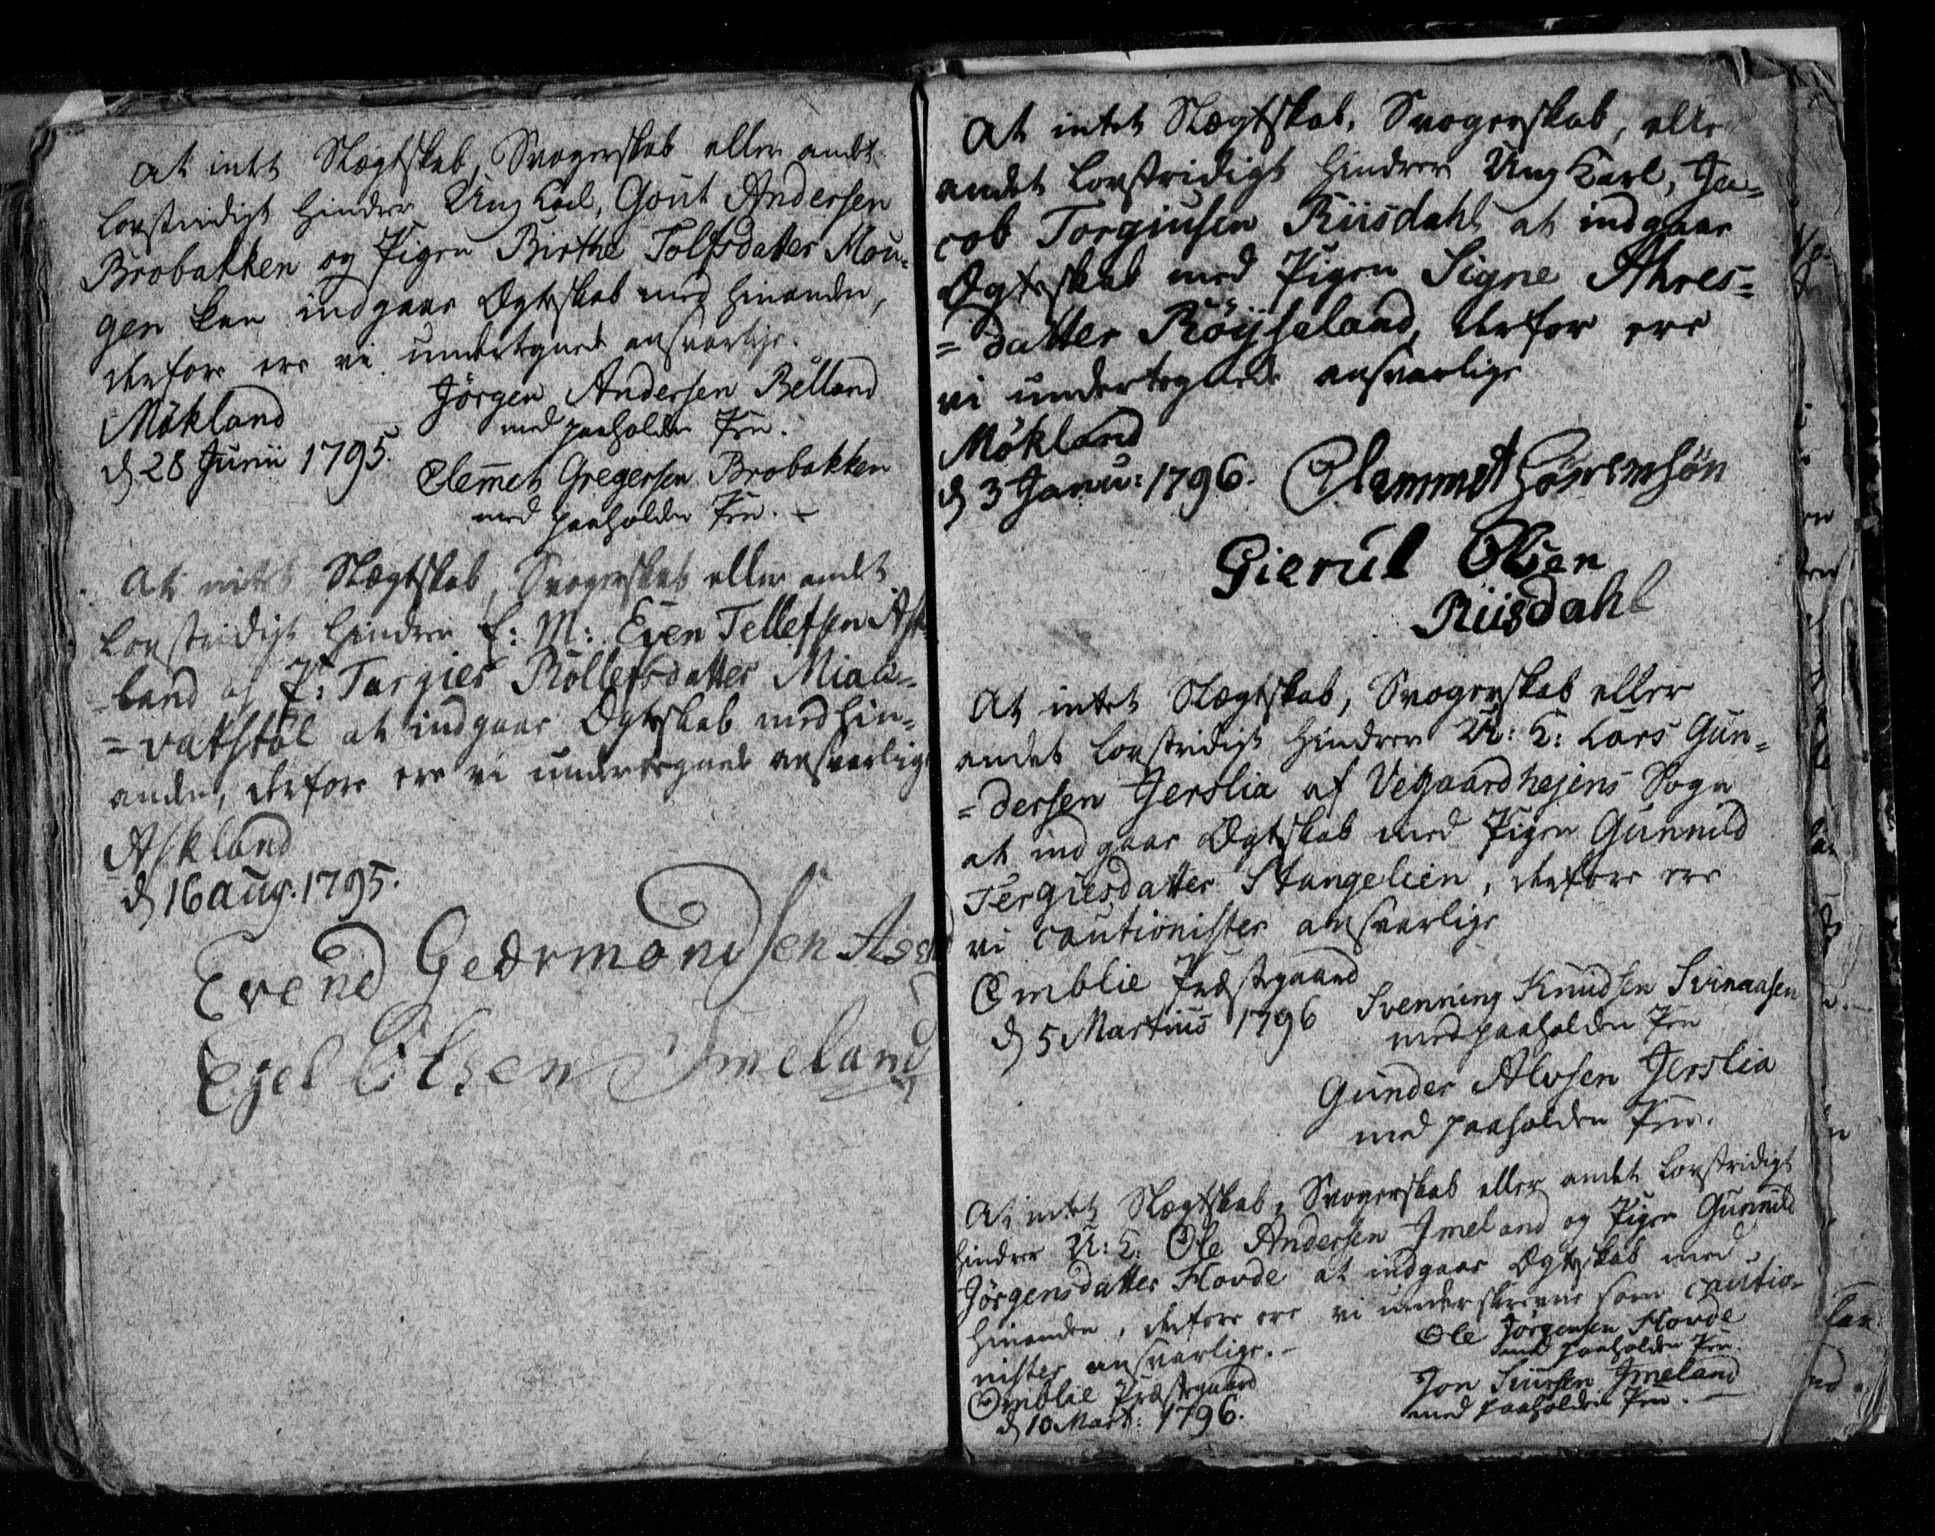 At intet Slægtskab, Svogerskab eller andet
lovstridigt hindrer Ung Karl, Gout Andersen
Brobakken og Pigen Birthe Tolfsdatter Mou-
gen kan indgaae Ægteskab med hinanden,
derfore ere vi undertegnede ansvarlige.
Mökland
d 28 Junii 1795.
Jörgen Andersen Belland
med paaholden Pen.
Clemet Gregersen Brobakken
med paaholden Pen.
At intet Slægtskab, Svogerskab eller andet
lovstridigt hindrer E: M: Even Tellefsen Ask-
=land og P: Targier Rollefsdatter Miaa-
=vatstöl at indgaae Ægteskab med hin-
anden, derfore ere vi undertegnede ansvarlige
Askland
d 16 Aug. 1795.
Evend Gedrmondsen
Egel Olsen Imeland
At intet Slægtskab, Svogerskab, eller
andet lovstridigt hindrer Ung Karl, Ja-
cob Torgiusen Riisdahl at indgaae
Ægteskab med Pigen Signe Ahres-
=datter Röyseland, derfor ere
vi undertegnede ansvarlige
Mökland
d 3 Janu: 1796.
Clemmet
Gierul Olsen
Riisdahl
At intet Slægtskab, Svogerskab eller
andet lovstridigt hindrer U: K: Lars Gun-
=dersen Jerslia af Vegaardhejens Sogn
at indgaae Ægteskab med Pigen Gunnild
Tergiesdatter Stangelien, derfore ere
vi cautionister ansvarlige
Omblie Præstegaard
d 5 Martius 1796
Svenning Knudsen Svinaasen
med paaholden Pen
Gunder Alvsen Jerslia
med paaholden Pen.
At intet Slægtskab, Svogerskab eller andet lovstridigt
hindrer U: K: Ole Andersen Imeland og Pigen Gunnild
Jörgensdatter Hovde at indgaae Ægteskab med
hinanden, derfore ere vi underskrevne som cautio-
nister ansvarlige.
Omblie Præstegaard
d 10 Mart: 1796.
Ole Jörgensen Hovde
med paaholden Pen.
Jon Siursen Imeland
med paaholden Pen.